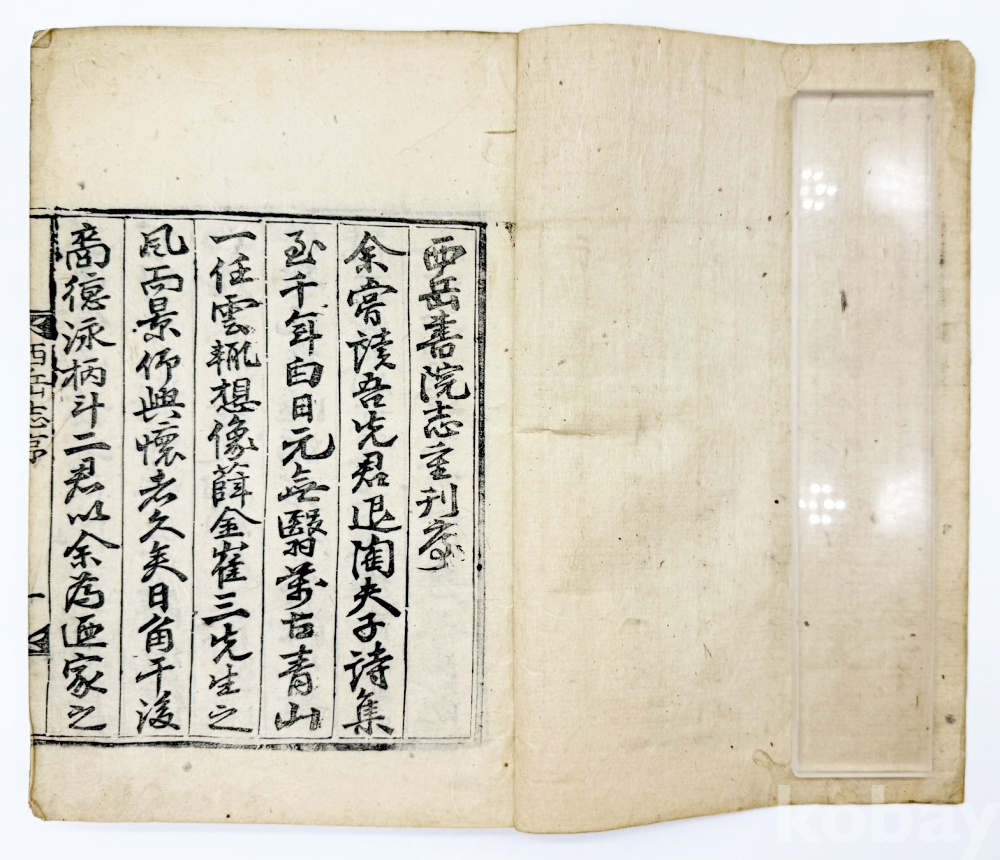 西岳書院志重刊序
余嘗讀吾先君退陶夫子詩集
至千年白日元無翳萬古青山
一任雲輒想像薛金崔三先生之
風而景仰興懷者久矣日角干浚
裔德泳柄斗二君以余爲迺家之
西岳志序
一
kobay